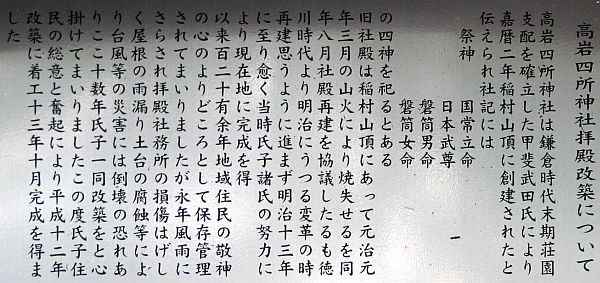 高岩四所神社拝殿改築について
高岩四所神社は鎌倉時代末期荘園
支配を確立した甲斐武田氏により
嘉暦二年稲村山頂に創建されたと
伝えられ社記には
祭神 国常立命
日本武尊
磐筒男命
磐筒女命
の四神を祀るとある
旧社殿は稲村山頂にあって元治元
年三月の山火により焼失せるを同
年八月社殿再建を協議したるも徳
川時代より明治にうつる変革の時
再建思うように進まず明治十三年
に至り愈く当時氏子諸氏の努力に
より現在地に完成を得
以来百二十有余年地域住民の敬神
の心のよりどころとして保存管理
されてまいりましたが永年風雨に
さらされ拝殿社務所の損傷はげし
く屋根の雨漏り土台の腐蝕等によ
り台風等の災害には倒壊の恐れあ
りここ十数年氏子一同改築をと心
掛けてまいりましたこの度氏子住
民の総意と奮起により平成十二年
改築に着工十三年十月完成を得ま
した